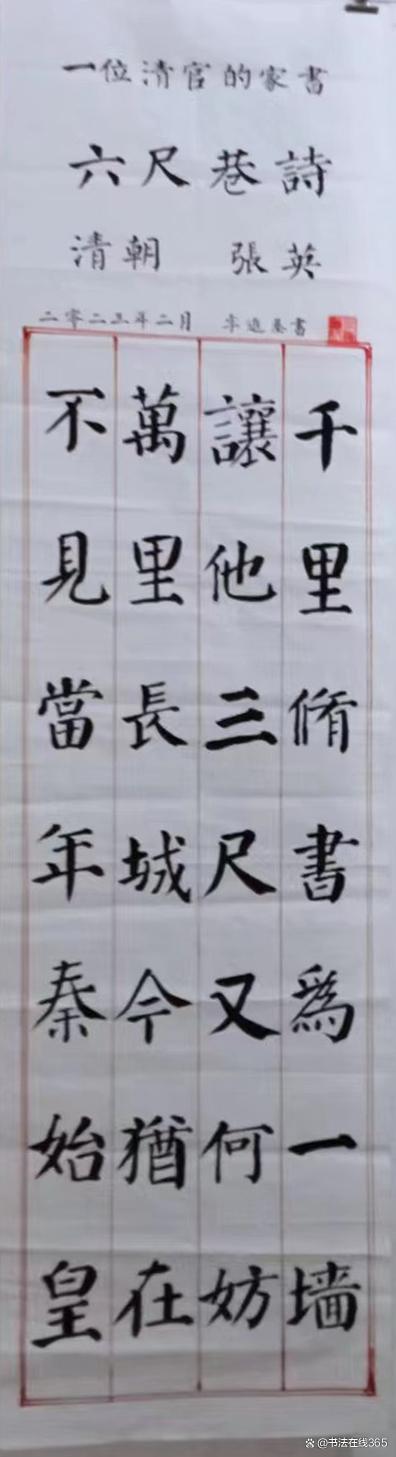 一位清官的家書
六尺巷詩
清朝 張英
二零二三年二月 書
千里脩書爲一墙
讓他三尺又何妨
萬里長城今猶在
不見當年秦始皇
@书法在线365